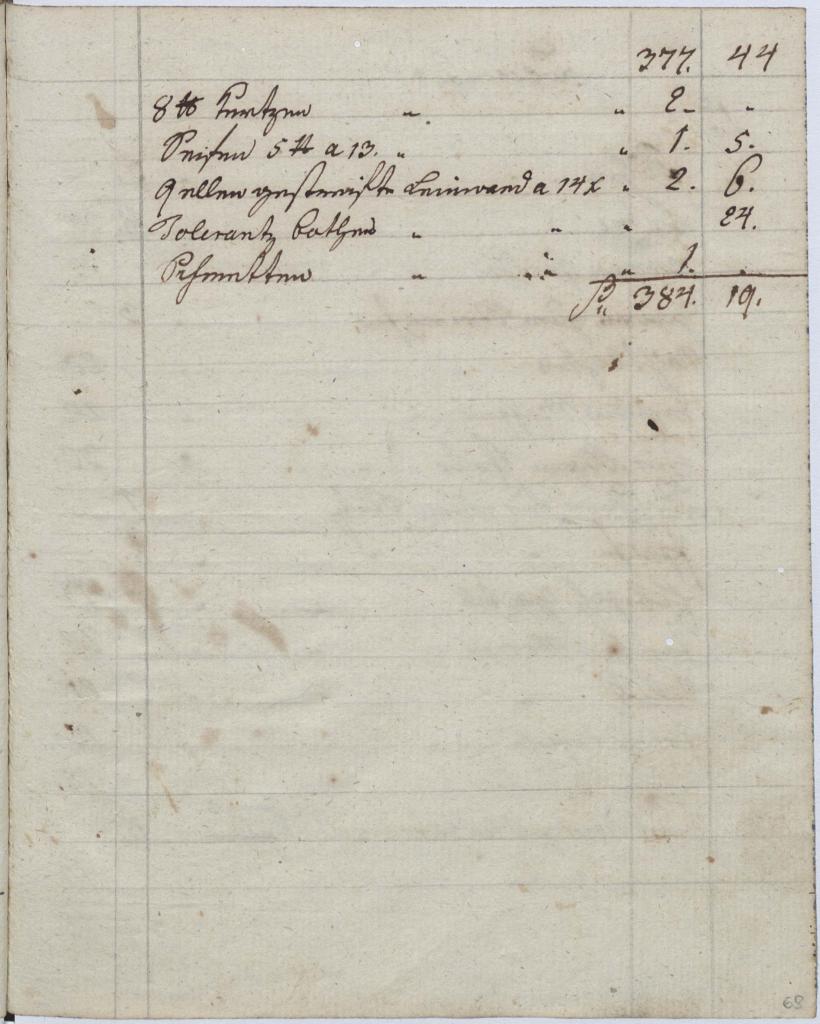 377. 44
8 ℔ Kertzen „ „ 2. „
Seifen 5 ℔ a 13. „ „ 1. 5.
9 ellen gestreifte Leinwand a 14 x „ 2. 6.
Tolerantz bothen „ „ „ 24.
Schmetten „ „ „ 1. „
384. 19.
68